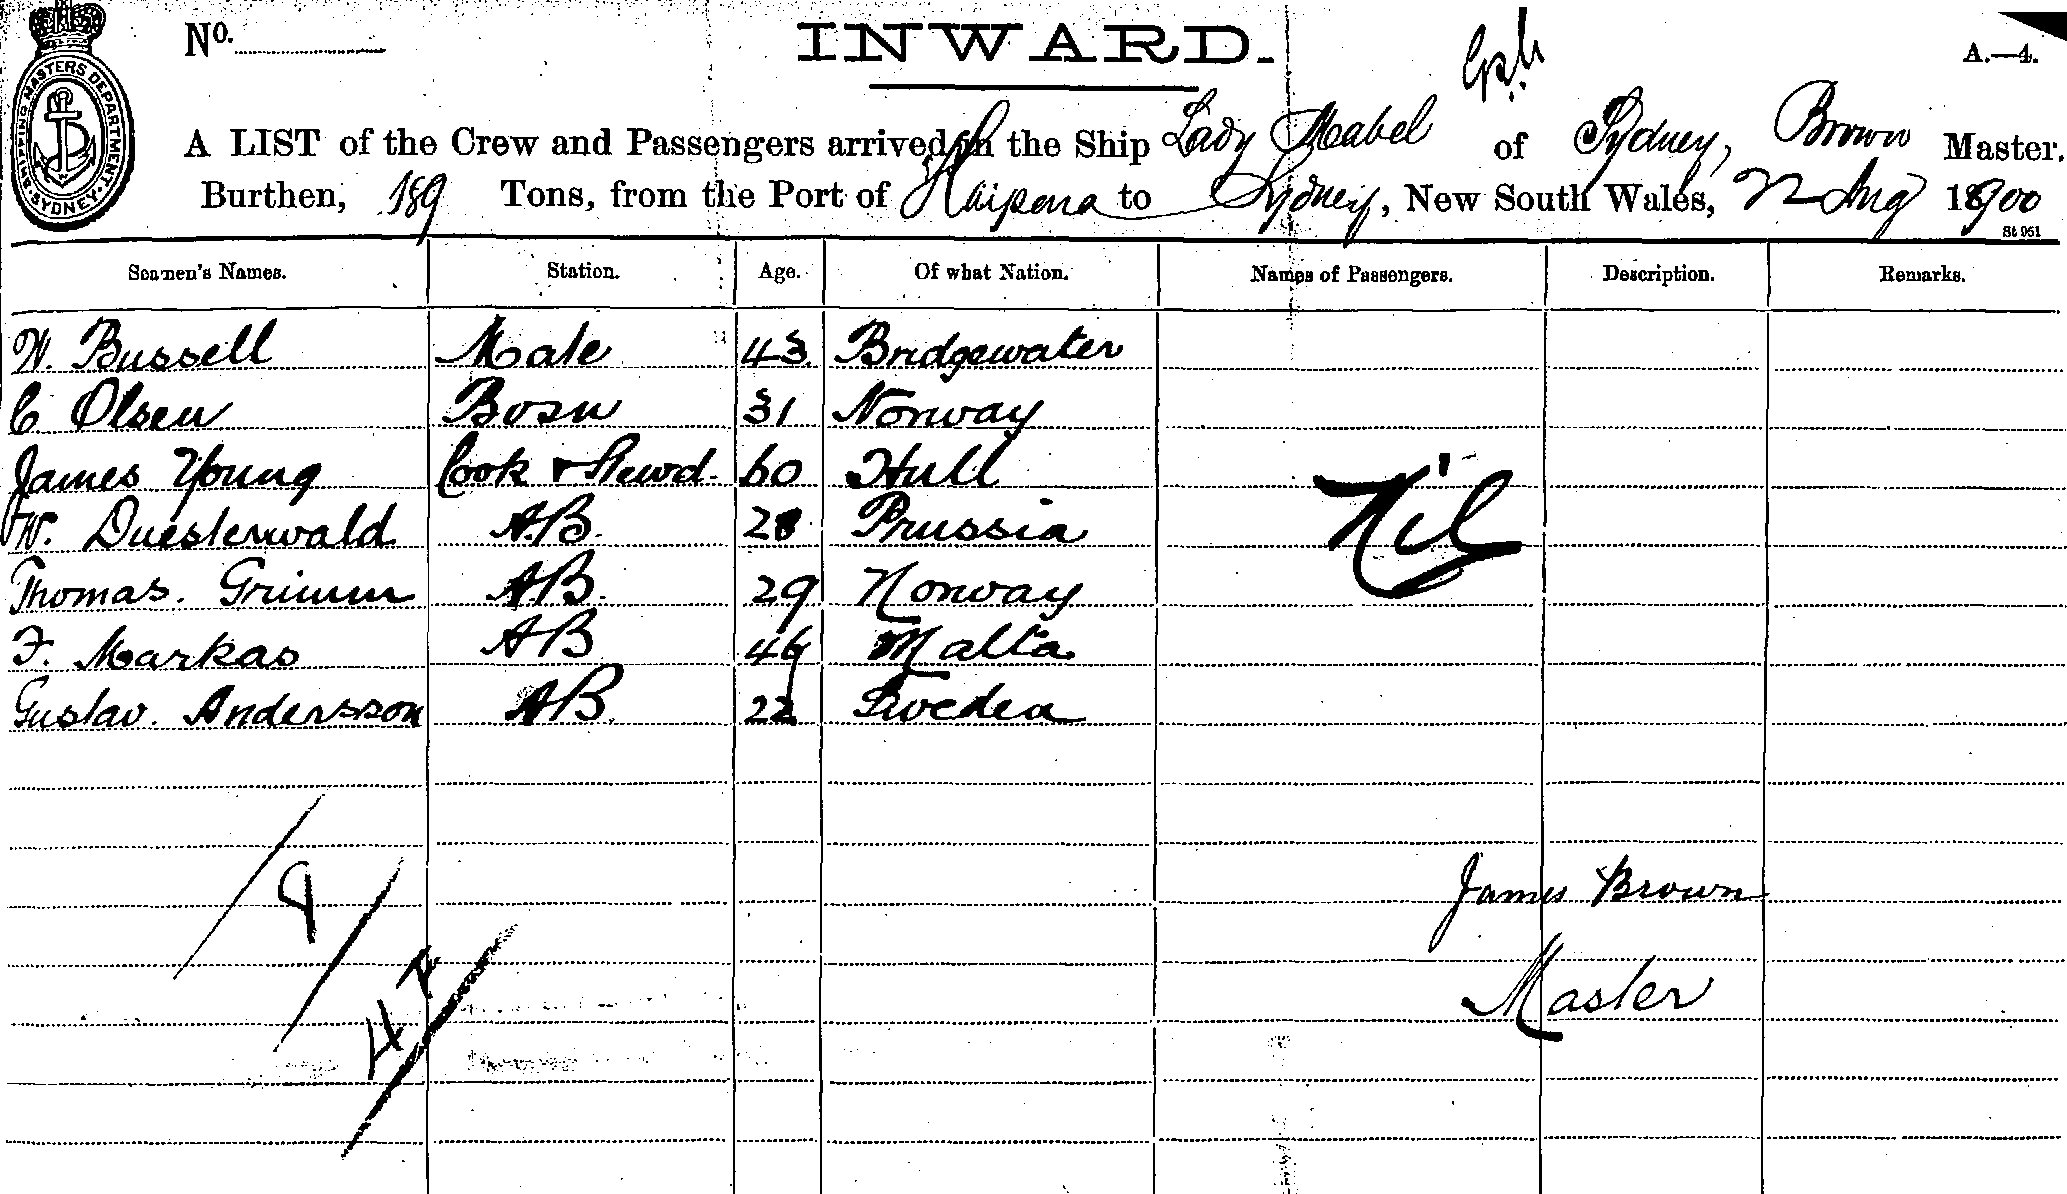 SHIPPING MASTERS DEPARTMENT SYDNEY
No.
INWARD.
A.—4.
A LIST of the Crew and Passengers arrived in the Ship Lady Mabel of Sydney, Brown Master.
Burthen, 189 Tons, from the Port of Kaipara to Sydney, New South Wales, 22 Aug 1900
St 961
Seamen's Names. Station. Age. Of what Nation. Names of Passengers. Description. Remarks.
W. Bussell Mate 43 Bridgewater
C Olsen Bosn 31 Norway
James Young Cook & Stewd. 60 Hull
W. Duesterwald AB. 28 Prussia
Thomas. Grimm AB. 29 Norway
Nil
F. Markas AB 46 Malta
Gustav. Andersson AB. 22 Sweden
James Brown
Master